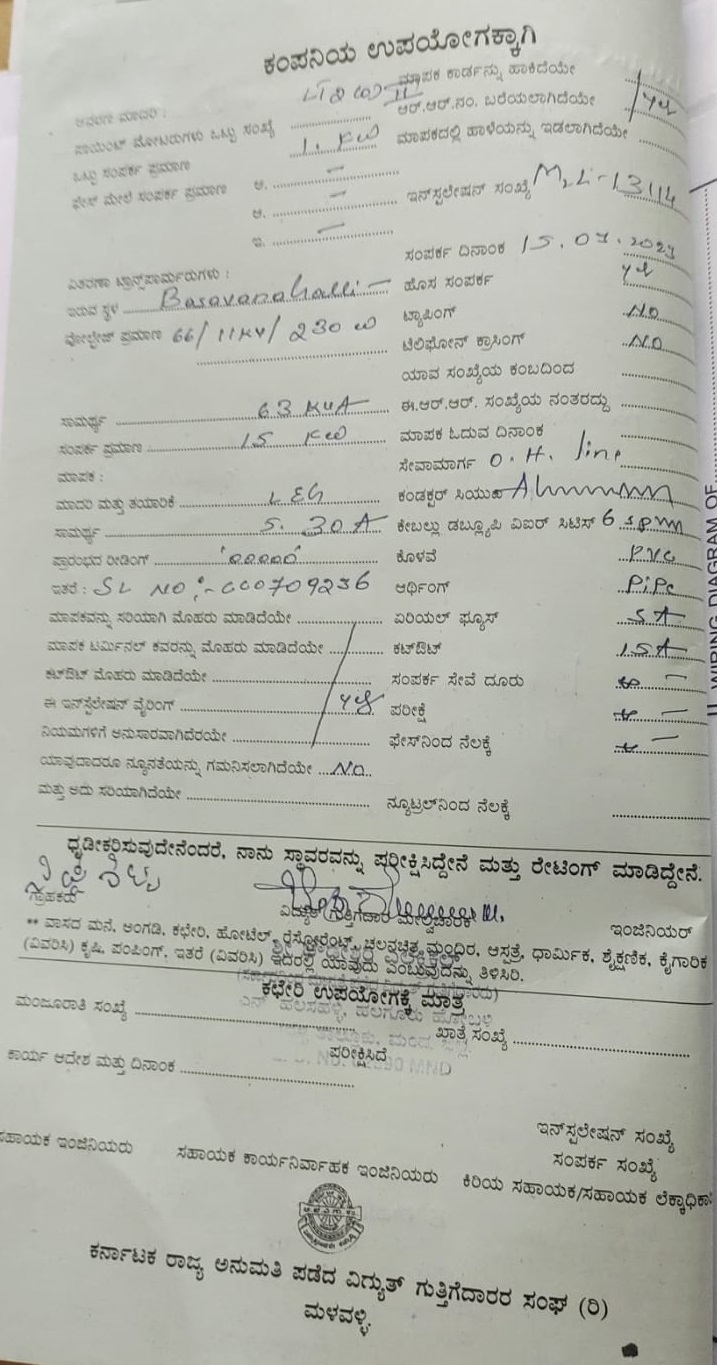 ಕಂಪನಿಯ ಉಪಯೋಗಕ್ಕಾಗಿ
ಮಾಪಕ ಕಾರ್ಡನ್ನು ಹಾಕಿದೆಯೇ
ಮಾದರಿ : LT 2 II ಆರ್.ಆರ್.ನಂ. ಬರೆಯಲಾಗಿದೆಯೇ
ಪಾಯಿಂಟ್ ಮೋಟರುಗಳು ಒಟ್ಟು ಸಂಖ್ಯೆ ಮಾಪಕದಲ್ಲಿ ಹಾಳೆಯನ್ನು ಇಡಲಾಗಿದೆಯೇ
ಒಟ್ಟು ಸಂಪರ್ಕ ಪ್ರಮಾಣ 1. KW
ಫೇಸ್ ಮೇಲೆ ಸಂಪರ್ಕ ಪ್ರಮಾಣ ಅ. – ಇನ್‌ಸ್ಟಲೇಷನ್ ಸಂಖ್ಯೆ MLL-13114
ಆ. –
ಇ. – ಸಂಪರ್ಕ ದಿನಾಂಕ 15.07.2023
ವಿತರಣಾ ಟ್ರಾನ್ಸ್‌ಪಾರ್ಮರುಗಳು :
ಇರುವ ಸ್ಥಳ Basavanahalli – ಹೊಸ ಸಂಪರ್ಕ
ವೋಲ್ಟೇಜ್ ಪ್ರಮಾಣ 66/11KV/230 ಟ್ಯಾಪಿಂಗ್ NO
ಟೆಲಿಫೋನ್ ಕ್ರಾಸಿಂಗ್ NO
ಯಾವ ಸಂಖ್ಯೆಯ ಕಂಬದಿಂದ
ಸಾಮರ್ಥ್ಯ 63 KVA ಈ.ಆರ್.ಆರ್. ಸಂಖ್ಯೆಯ ನಂತರದ್ದು
ಸಂಪರ್ಕ ಪ್ರಮಾಣ 15 KW ಮಾಪಕ ಓದುವ ದಿನಾಂಕ
ಮಾಪಕ : ಸೇವಾಮಾರ್ಗ O.H. line
ಮಾದರಿ ಮತ್ತು ತಯಾರಿಕೆ L&G ಕಂಡಕ್ಟರ್
ಸಾಮರ್ಥ್ಯ 5.30A ಕೇಬಲ್ಲು ಡಬ್ಲ್ಯೂಪಿ ವಿಐರ್ ಸಿಟಿಸ್
ಪ್ರಾರಂಭದ ರೀಡಿಂಗ್ '00000' ಕೊಳವೆ PVC
ಇತರೆ : SL NO:-000709236 ಆರ್ಥಿಂಗ್ PiPe
ಮಾಪಕವನ್ನು ಸರಿಯಾಗಿ ಮೊಹರು ಮಾಡಿದೆಯೇ ಏರಿಯಲ್ ಫ್ಯೂಸ್ 5A
ಮಾಪಕ ಟರ್ಮಿನಲ್ ಕವರನ್ನು ಮೊಹರು ಮಾಡಿದೆಯೇ ಕಟ್‌ಔಟ್ 15A
ಕಟ್‌ಔಟ್ ಮೊಹರು ಮಾಡಿದೆಯೇ ಸಂಪರ್ಕ ಸೇವೆ ದೂರು
ಈ ಇನ್‌ಸ್ಟಲೇಷನ್ ವೈರಿಂಗ್ ಪರೀಕ್ಷೆ
ನಿಯಮಗಳಿಗೆ ಅನುಸಾರವಾಗಿದೆರಯೇ ಫೇಸ್‌ನಿಂದ ನೆಲಕ್ಕೆ
ಯಾವುದಾದರೂ ನ್ಯೂನತೆಯನ್ನು ಗಮನಿಸಲಾಗಿದೆಯೇ NO
ಮತ್ತು ಅದು ಸರಿಯಾಗಿದೆಯೇ ನ್ಯೂಟ್ರಲ್‌ನಿಂದ ನೆಲಕ್ಕೆ
ಧೃಡೀಕರಿಸುವುದೇನೆಂದರೆ, ನಾನು ಸ್ಥಾವರವನ್ನು ಪರೀಕ್ಷಿಸಿದ್ದೇನೆ ಮತ್ತು ರೇಟಿಂಗ್ ಮಾಡಿದ್ದೇನೆ.
ಗ್ರಾಹಕರು ವಿದ್ಯುತ್ ಗುತ್ತಿಗೆದಾರ ಮೇಲ್ವಿಚಾರಕ ಇಂಜಿನಿಯರ್
** ವಾಸದ ಮನೆ, ಅಂಗಡಿ, ಕಛೇರಿ, ಹೋಟೆಲ್, ರೆಸ್ಟೋರೆಂಟ್, ಚಲನಚಿತ್ರ ಮಂದಿರ, ಆಸ್ಪತ್ರೆ, ಧಾರ್ಮಿಕ, ಶೈಕ್ಷಣಿಕ, ಕೈಗಾರಿಕ
(ವಿವರಿಸಿ) ಕೃಷಿ, ಪಂಪಿಂಗ್, ಇತರೆ (ವಿವರಿಸಿ) ಇದರಲ್ಲಿ ಯಾವುದು ಎಂಬುವುದನ್ನು ತಿಳಿಸಿರಿ.
ಕಛೇರಿ ಉಪಯೋಗಕ್ಕೆ ಮಾತ್ರ
ಮಂಜೂರಾತಿ ಸಂಖ್ಯೆ ಖಾತೆ ಸಂಖ್ಯೆ
ಪರೀಕ್ಷಿಸಿದೆ
ಕಾರ್ಯ ಆದೇಶ ಮತ್ತು ದಿನಾಂಕ
ಇನ್‌ಸ್ಟಲೇಷನ್ ಸಂಖ್ಯೆ
ಸಂಪರ್ಕ ಸಂಖ್ಯೆ
ಸಹಾಯಕ ಇಂಜಿನಿಯರು ಸಹಾಯಕ ಕಾರ್ಯನಿರ್ವಾಹಕ ಇಂಜಿನಿಯರು ಕಿರಿಯ ಸಹಾಯಕ/ಸಹಾಯಕ ಲೆಕ್ಕಾಧಿಕಾ
ಕರ್ನಾಟಕ ರಾಜ್ಯ ಅನುಮತಿ ಪಡೆದ ವಿದ್ಯುತ್ ಗುತ್ತಿಗೆದಾರರ ಸಂಘ (ರಿ)
ಮಳವಳ್ಳಿ.
II. WIRING DIAGRAM OF